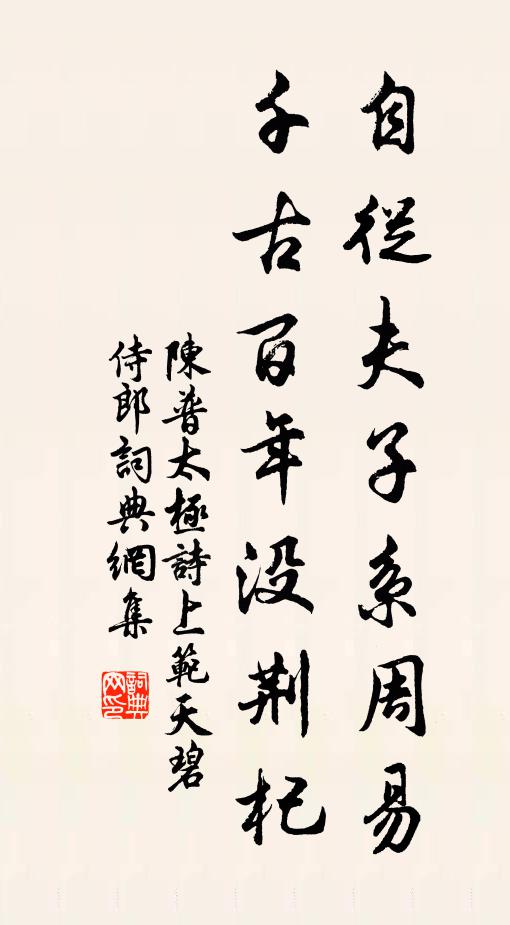 自從夫子系周易
千古百年没荆杞
陳普太極詩上範天碧
侍郎詞典網集
詞典网印